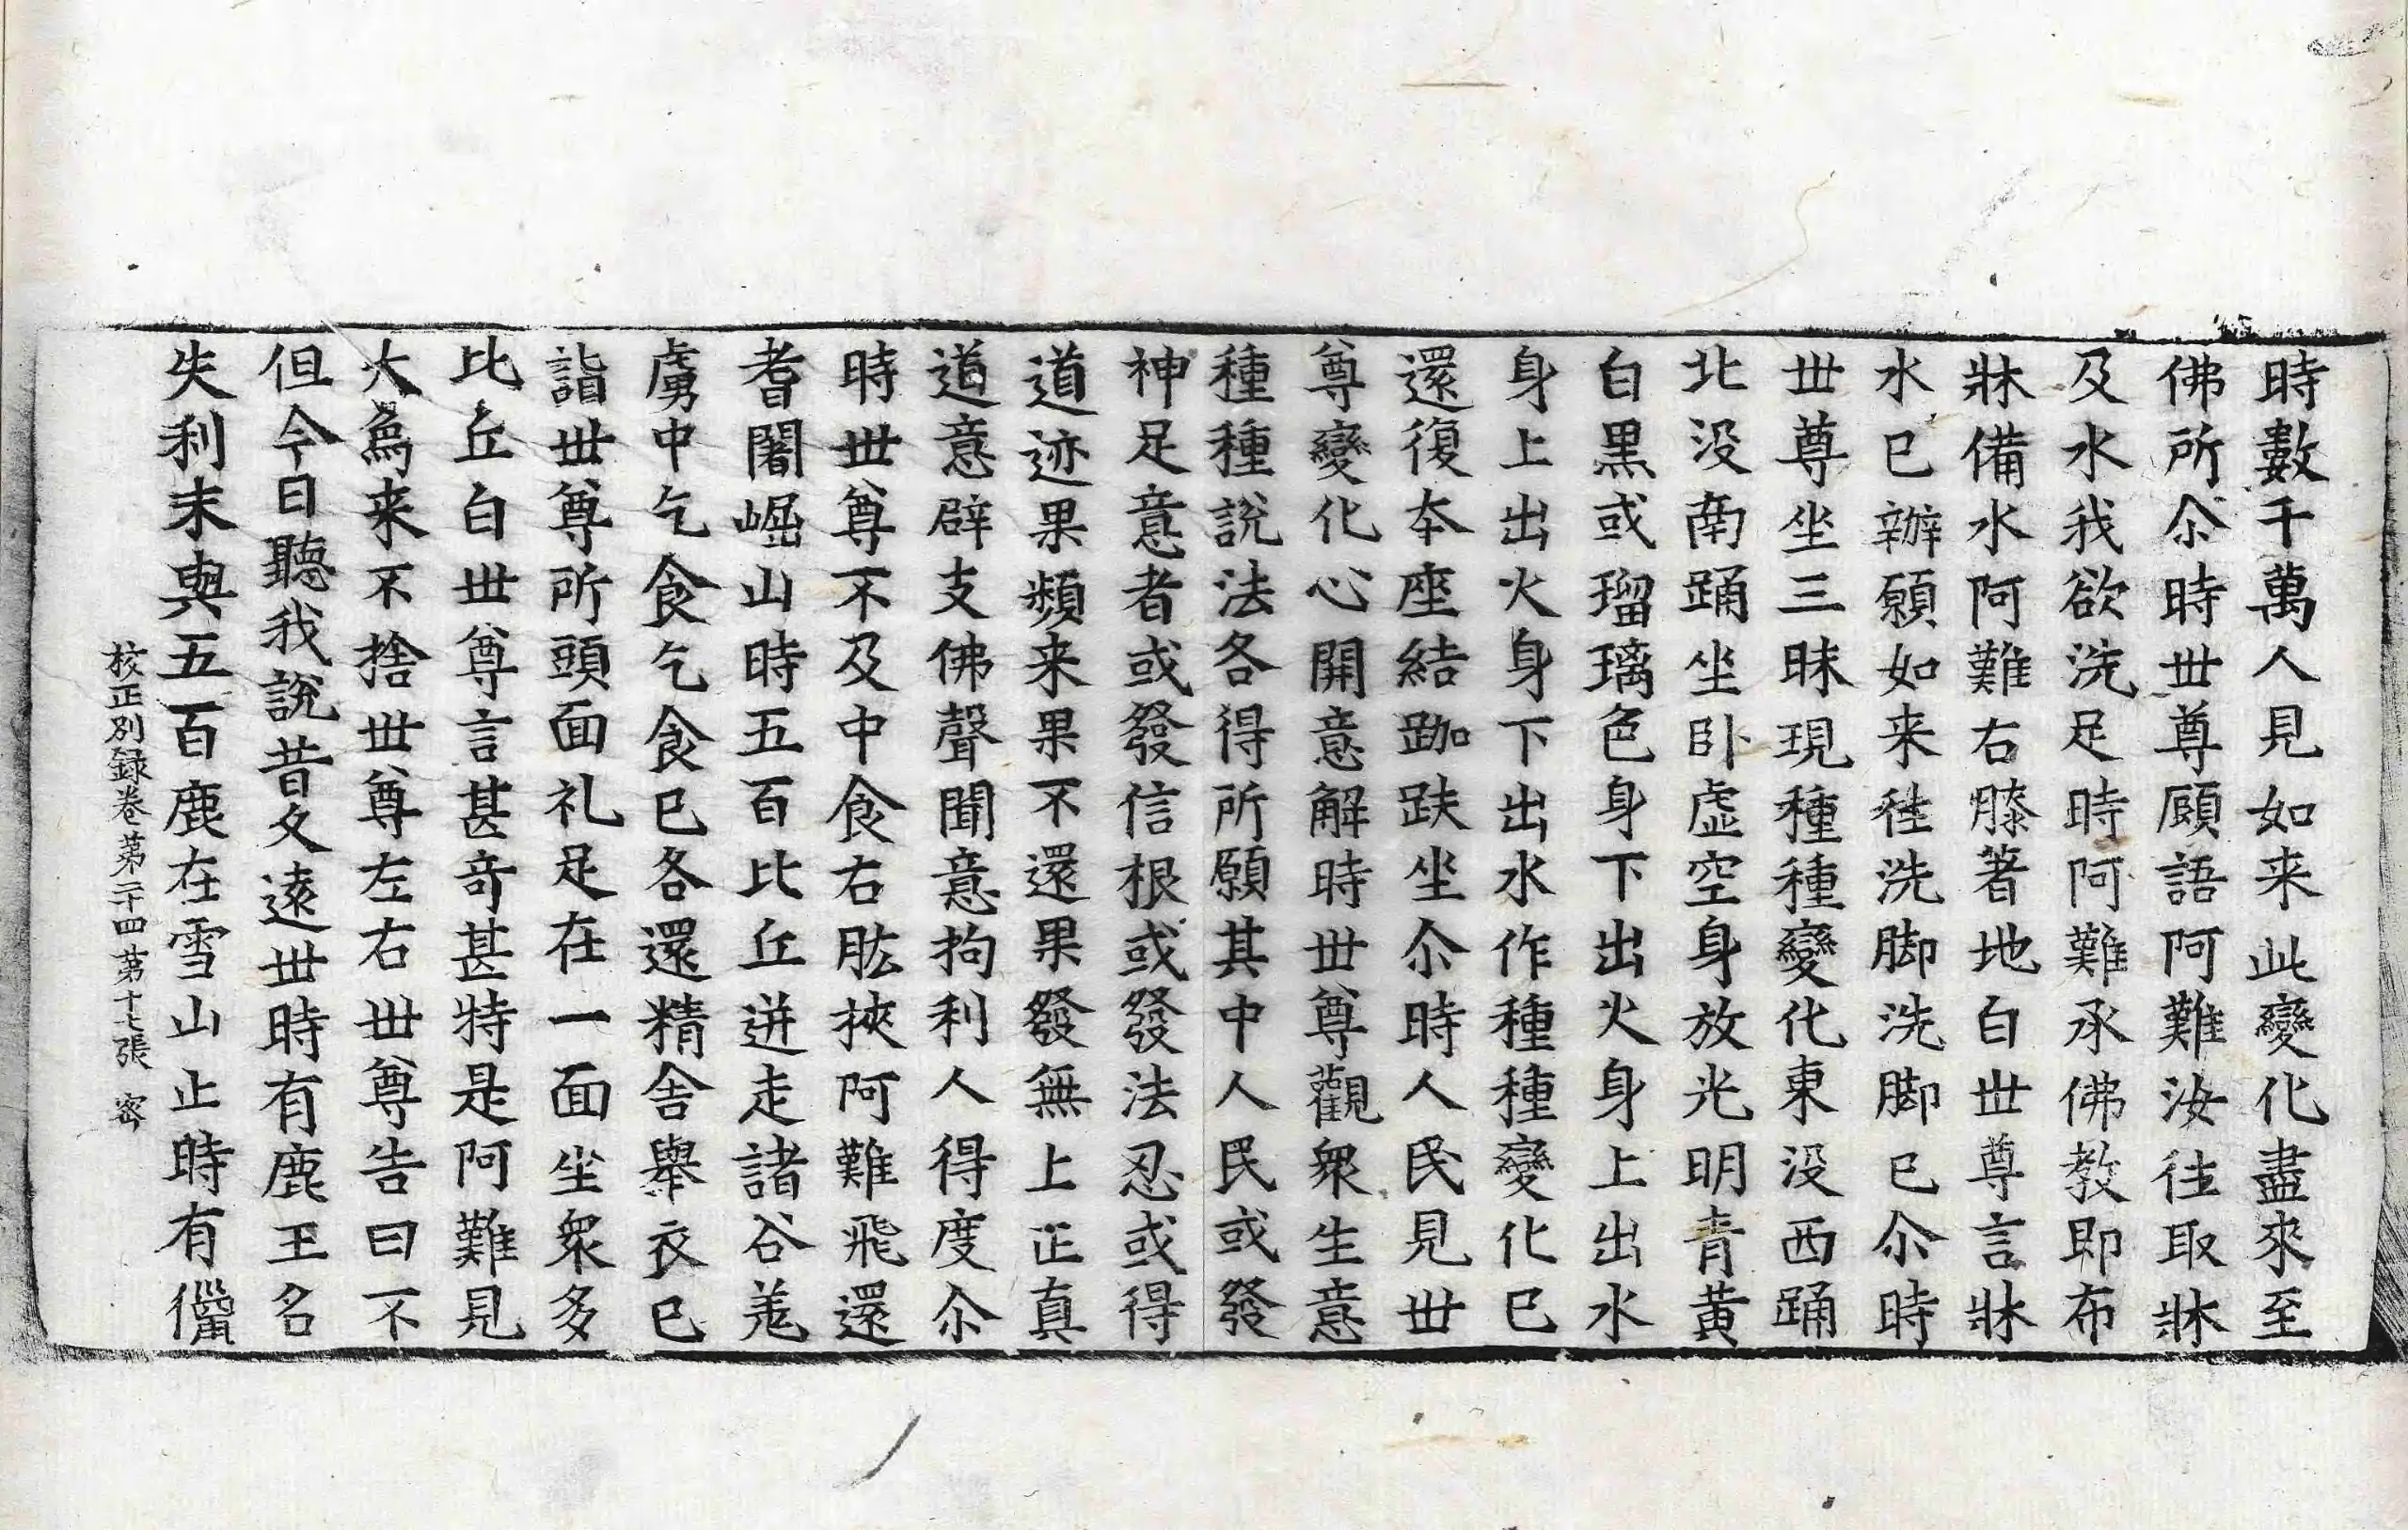 時數千萬人見如来此變化盡來至
佛所尒時丗尊顧語阿難汝往取牀
及水我欲洗足時阿難承佛教即布
牀備水阿難右膝著地白丗尊言牀
水已辦願如来往洗脚洗脚已尒時
丗尊坐三昧現種種變化東没西踊
北没南踊坐卧虛空身放光明青黄
白黒或瑠璃色身下出火身上出水
身上出火身下出水作種種變化已
還復本座結跏趺坐尒時人民見丗
尊變化心開意解時丗尊觀衆生意
種種說法各得所願其中人民或發
神足意者或發信根或發法忍或得
道迹果頻来果不還果發無上正真
道意辟支佛聲聞意拘利人得度尒
時丗尊不及中食右肱挾阿難飛還
耆闍崛山時五百比丘逬走諸谷羗
虜中乞食乞食已各還精舎舉衣已
詣丗尊所頭面礼足在一面坐衆多
比丘白丗尊言甚奇甚特是阿難見
大爲来不捨丗尊左右丗尊告曰不
但今日聽我說昔久遠丗時有鹿王名
失利末與五百鹿在雪山止時有儠
校正別録卷第二十四第十七張 宻